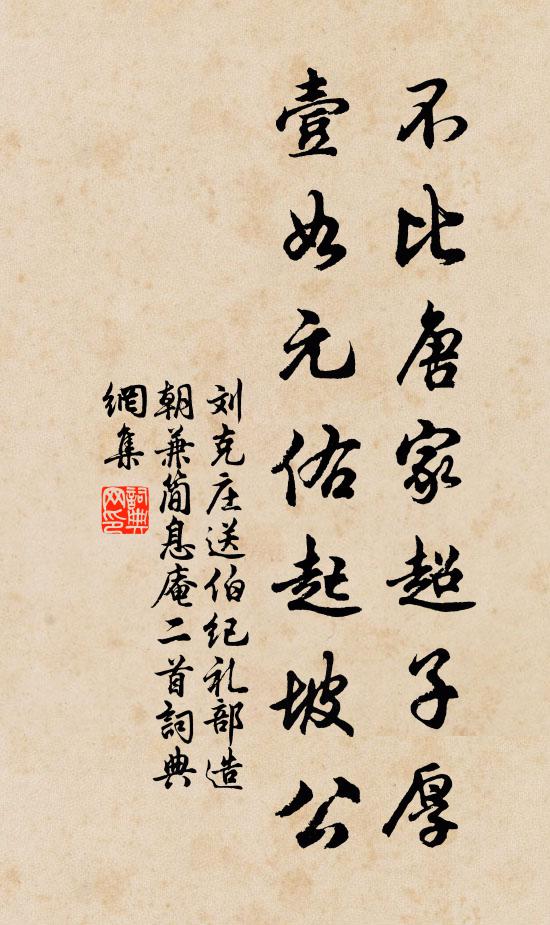 不比唐家超子厚
壹如元佑起坡公
刘克庄送伯纪礼部造
朝兼简息庵二首詞典
網集
詞典网印